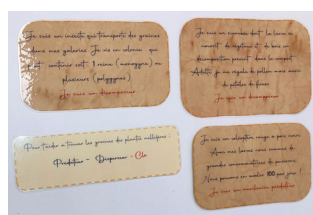 Je suis un insecte qui transporte des graines
dans mes galeries. Je vis en colonie qui
peut contenir soit 1 reine (monogyne) ou
plusieurs (polygynes)
Je suis un
Je suis un dont la larve se
nourrit de et de bois en
décomposition pendant dans le
Adulte, je me régale de pollen mais aussi
de pétales de fleurs
Je suis un décomposeur
Pour t'aider à trouver les graines des plantes mellifères :
Prédateur - Disperseur - Clo
Je suis un coléoptère rouge à points noirs
mes larves nous sommes de
grandes consommatrices de pucerons
Nous pouvons en manger 100 par jour !
Je suis une prédatrice